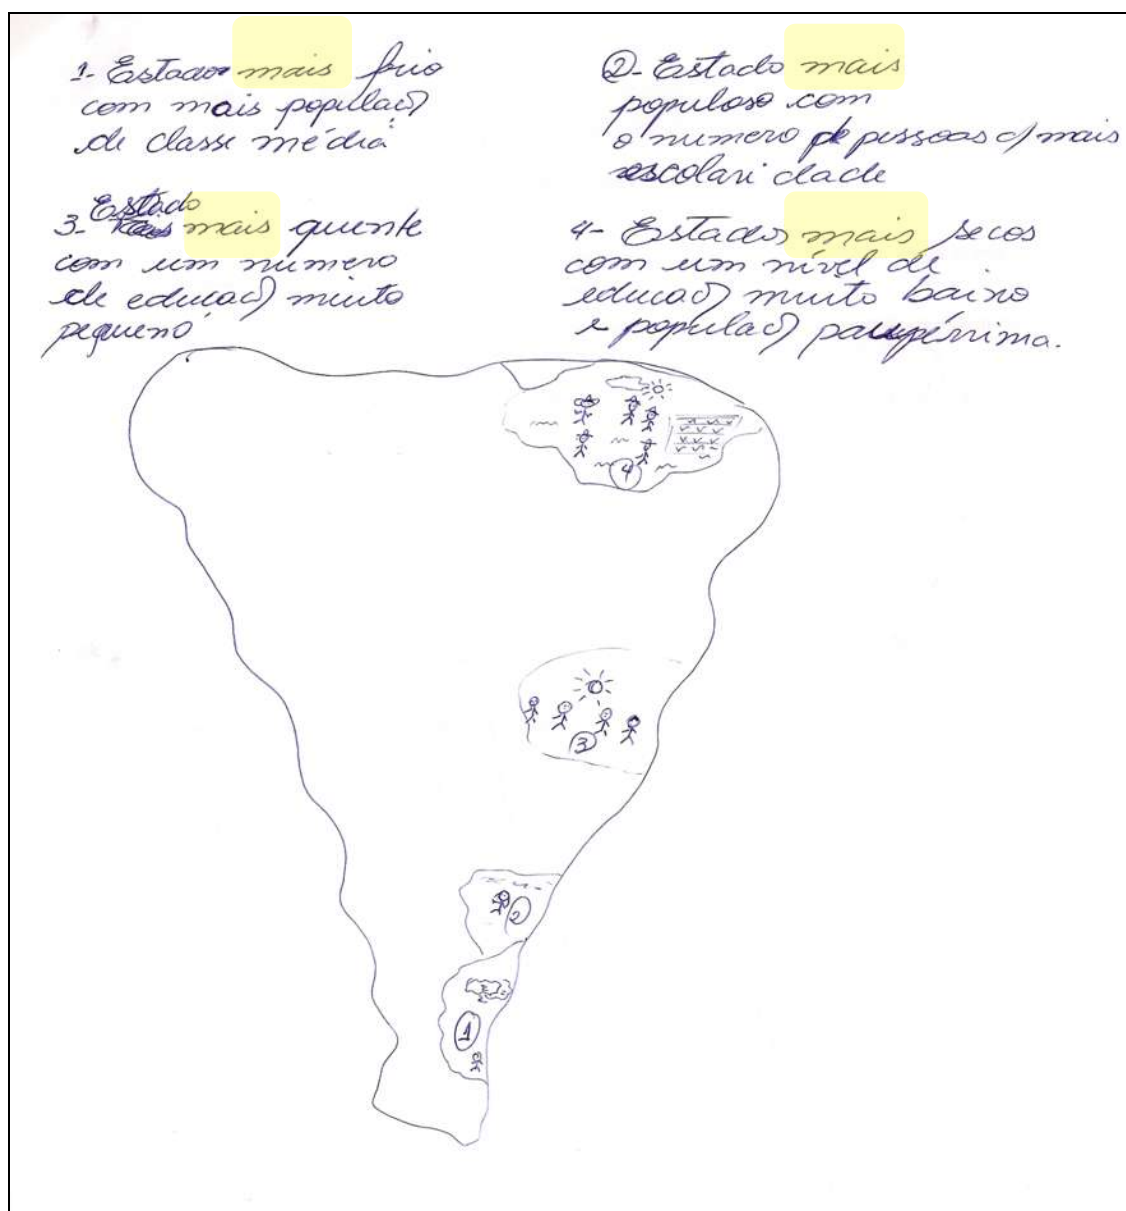 1- Estados mais frio
com mais populaçaõ
de classe média
②- Estado mais
populoso com
o numero de pessoas c/ mais
escolaridade
Estado
3- mais quente
com um número
de educaçaõ muito
pequeno
4- Estados mais secos
com um nível de
educaçaõ muito baixo
e populaçaõ paupérrima.
4
3
2
1